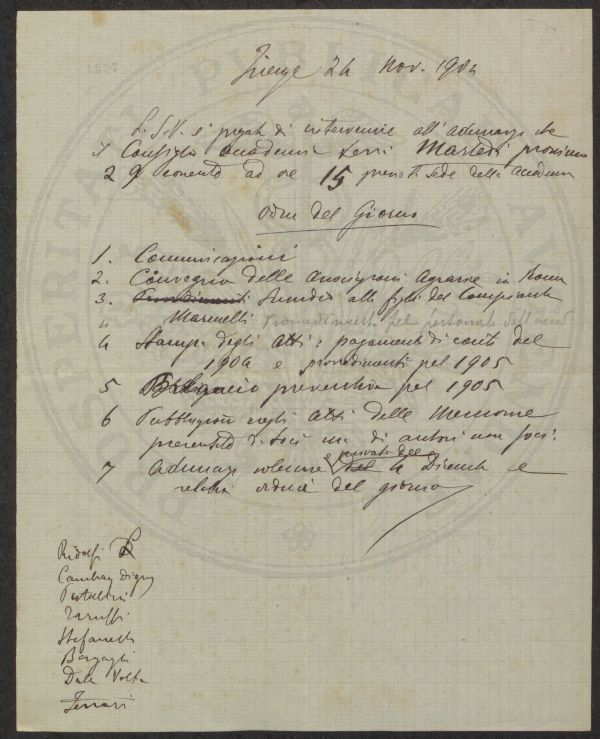 Firenze 24 Nov. 1904
L. S. V. è pregata di intervenire all'adunanza che
Consiglio accademico terrà Martedì prossimo
29 corrente ad ore 15 presso la sede della accademia
Ordine del Giorno
1. Comunicazioni
2. Convegno delle associazioni agrarie in Roma
3. Provvedimenti Sussidio alla figlia del compianto
Marinelli Provvedimenti pel personale dell'accad
4 Stampa degli Atti: pagamenti di conti del
1904 e provvedimenti pel 1905
5 Bilancio preventivo pel 1905
6 Pubblicazione negli Atti delle Memorie
presentate di soci ma di autori non soci:
7 Adunanze solenne e private del 4 Dicembre e
relativi ordini del giorno
Ridolfi
Cambray Digny
Pestellini
Taruffi
Stefanelli
Bargagli
Dalla Volta
Ferrari